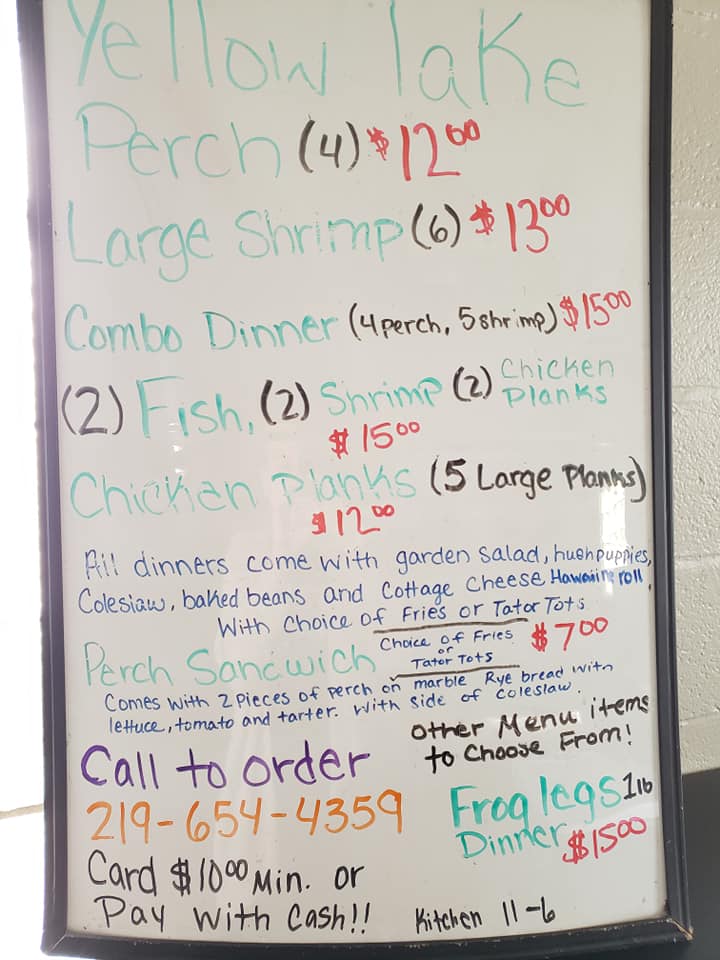 Yellow lake
Perch (4) $12.00
Large Shrimp (6) $13.00
Combo Dinner (4 perch, 5 shrimp) $15.00
(2) Fish, (2) Shrimp (2) Chicken Planks
$15.00
Chicken Planks (5 Large Planks)
$12.00
All dinners come with garden salad, hushpuppies,
Coleslaw, baked beans and Cottage Cheese Hawaiin roll,
With Choice of Fries or Tator Tots
Perch Sandwich Choice of Fries or Tator Tots $7.00
Comes with 2 pieces of perch on marble Rye bread with
lettuce, tomato and tarter. With side of coleslaw.
Other Menu items
to Choose From!
Call to order
219-654-4359
Frog legs 1lb
Dinner $15.00
Card $10.00 Min. or
Pay with Cash!! Kitchen 11-6